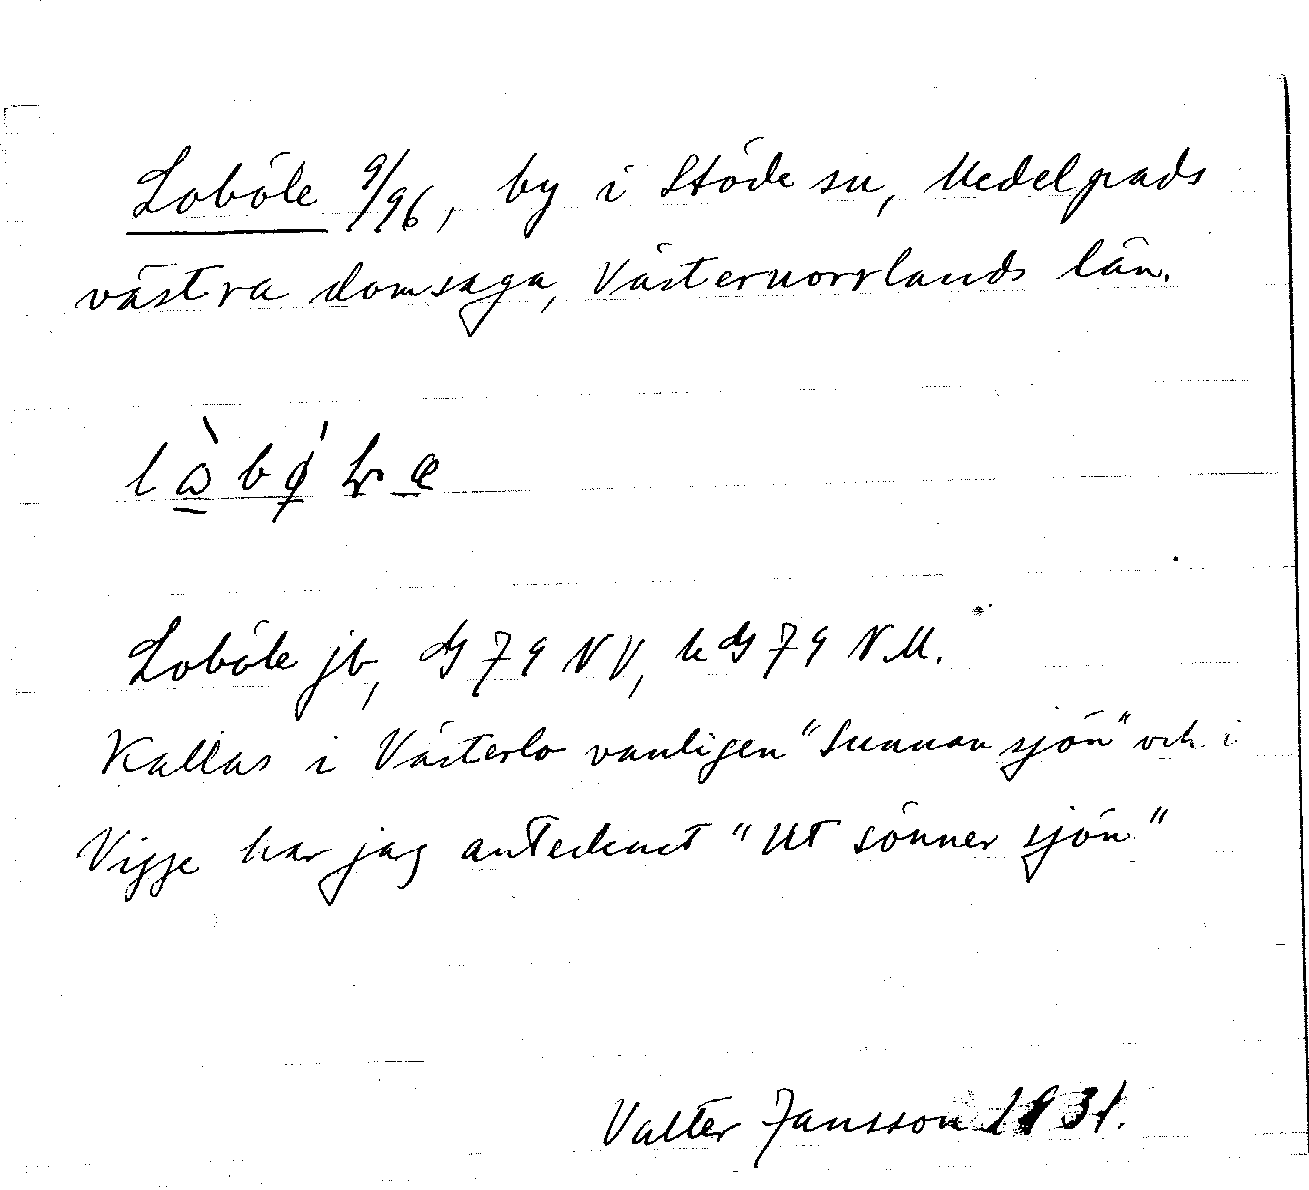 Loböle 9/96, by i Stöde sn, Medelpads
västra domsaga, Västernorrlands län.
Loböle jb, GS 79 NV, kGS 79 N.M.
Kallas i Västerlo vanligen "Sunnan sjön" och i
Vigge har jag antecknat "Ut sönner sjön"
Valter Jansson 1931.